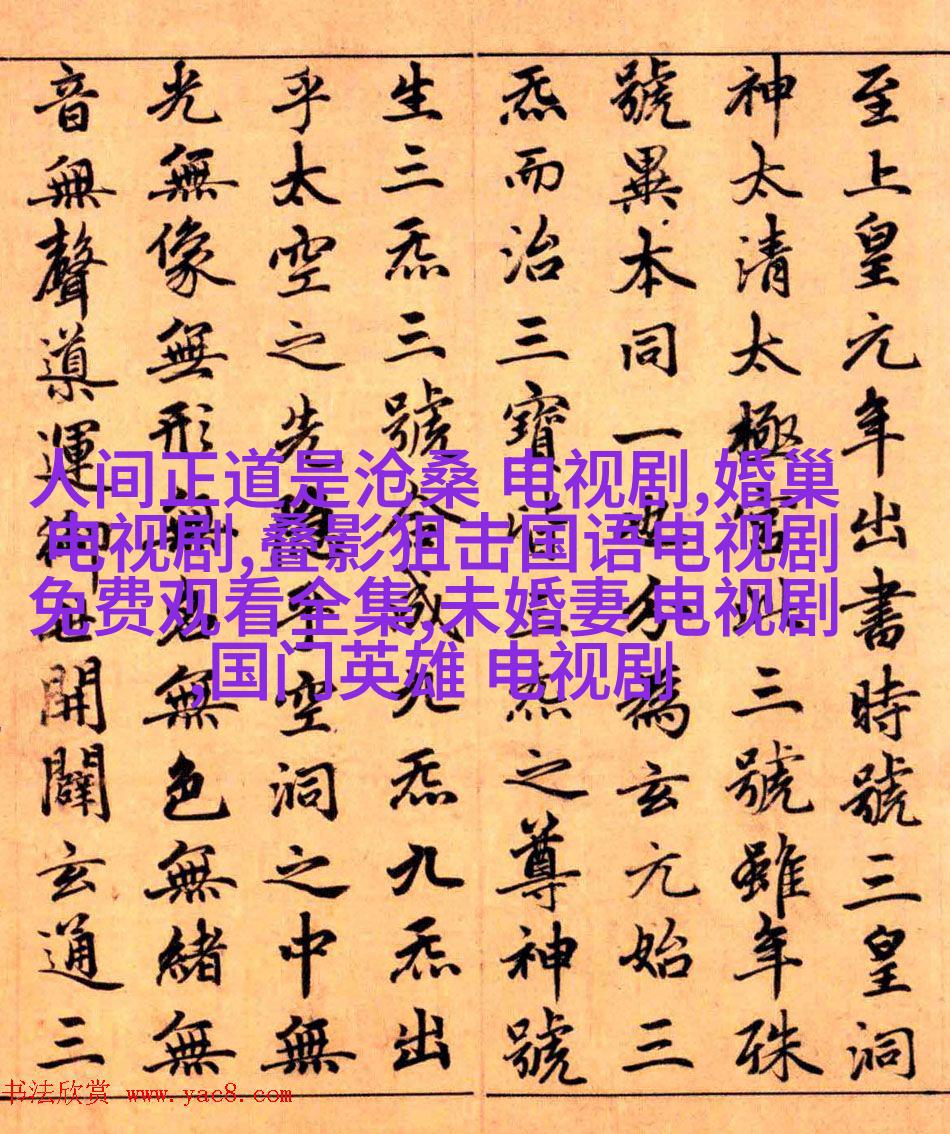 至上皇元年出書時號三皇洞
神太清太極宮此三號雖年殊
號異本同一也分為玄元始三
炁而治三寶皆三炁之尊神號
生三炁三號合成九炁九炁出
乎太空之先乎空洞之中無
光無像無形無名無色無緒無
音無聲導運御世開闢玄通三
人间正道是沧桑 电视剧,婚巢
电视剧,叠影狙击国语电视剧
免费观看全集,未婚妻 电视剧
,国门英雄 电视剧
书法欣赏 www.yac8.com